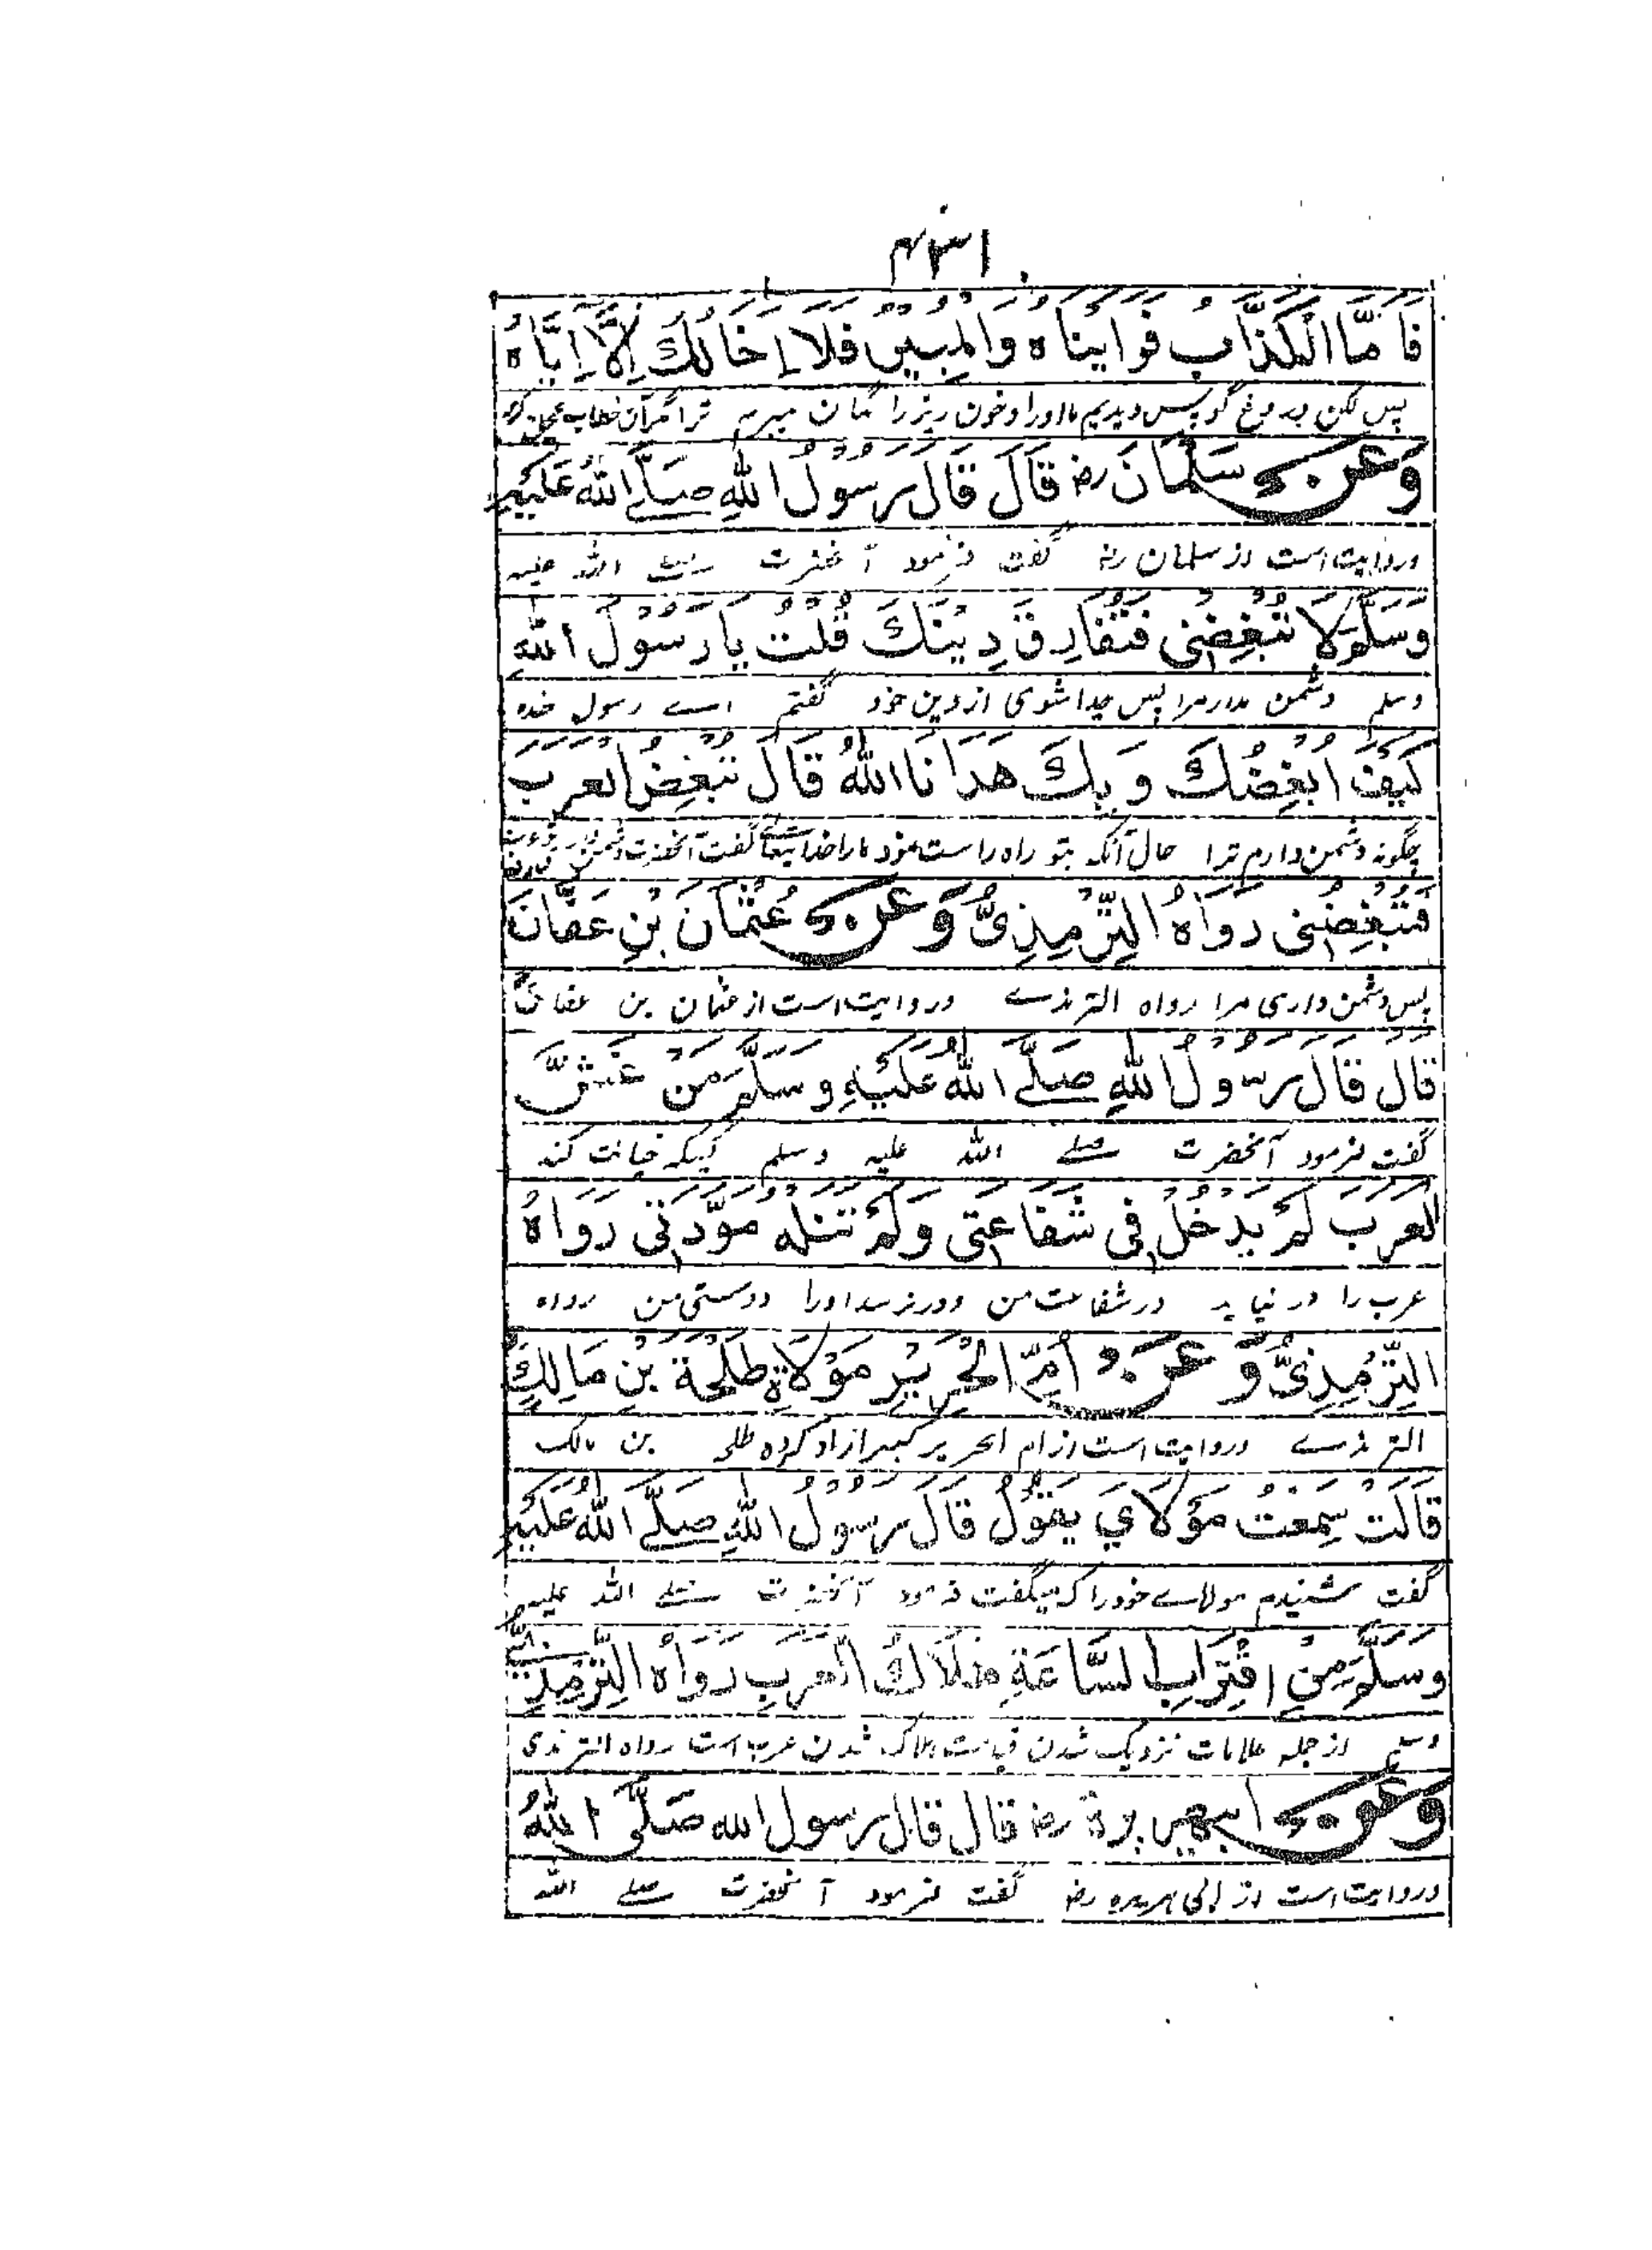 ۴۳۱
فَاَمَّا الْكَذَّابُ فَرَاَيْنَاهُ وَالْمُبِيْرُ فَلَا اِخَالُكَ اِلَّا اِيَّاهُ
پس لکن دروغ گو پس دیدیم ما اورا و خون ریز را گمان میبرم ترا مگر آن خطاب
وَعَنْ سَلْمَانَ رض قَالَ قَالَ رَسُوْلُ اللهِ صَلَّے اللهُ عَلَيْهِ
وروایت است از سلمان رض گفت فرمود آنحضرت صلے اللہ علیہ
وَسَلَّمَ لَا تُبْغِضْنِی فَتُفَارِقَ دِيْنَكَ قُلْتُ يَا رَسُوْلَ اللهِ
وسلم دشمن مدار مرا پس جدا شوی از دین خود گفتم اے رسول خدا
كَيْفَ اُبْغِضُكَ وَبِكَ هَدَانَا اللهُ قَالَ تُبْغِضُ الْعَرَبَ
چگونه دشمن دارم ترا حال آنکہ بتو راه راست نمود مارا خدا گفت آنحضرت دشمن
فَتُبْغِضُنِی رَوَاهُ التِّرْمِذِیُّ وَعَنْ عُثْمَانَ بْنِ عَفَّانَ
پس دشمن داری مرا رواه الترمذے وروایت است از عثمان بن عفان
قَالَ قَالَ رَسُوْلُ اللهِ صَلَّے اللهُ عَلَيْهِ وَسَلَّمَ مَنْ غَشَّ
گفت فرمود آنحضرت صلے اللہ علیہ وسلم کسیکہ خیانت کند
الْعَرَبَ لَمْ يَدْخُلْ فِی شَفَاعَتِی وَلَمْ تَنَلْهُ مَوَدَّتِی رَوَاهُ
عرب را در نیاید در شفاعت من و در نرسد اورا دوستی من رواه
التِّرْمِذِیُّ وَعَنْ اُمِّ الْحُرَيْرِ مَوْلَاةِ طَلْحَةَ بْنِ مَالِكٍ
الترمذے وروایت است از ام الحریر کنیز ازاد کرده طلحہ بن مالک
قَالَتْ سَمِعْتُ مَوْلَايَ يَقُوْلُ قَالَ رَسُوْلُ اللهِ صَلَّے اللهُ عَلَيْهِ
گفت شنیدم مولاے خود را کہ میگفت فرمود آنحضرت صلے اللہ علیہ
وَسَلَّمَ مِنْ اِقْتِرَابِ السَّاعَةِ هَلَاكُ الْعَرَبِ رَوَاهُ التِّرْمِذِیُّ
وسلم از جملہ علامات نزدیک شدن قیامت ہلاک شدن عرب است رواه الترمذی
وَعَنْ ابی هریرة رض قال قال رسول الله صَلَّى اللهُ
وروایت است از ابی ہریره رض گفت فرمود آنحضرت صلے اللہ